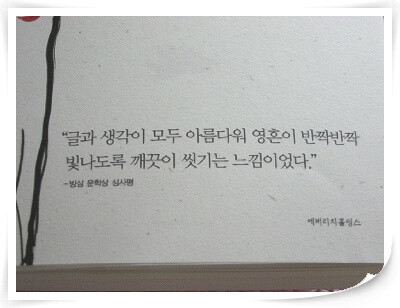 “글과 생각이 모두 아름다워 영혼이 반짝반짝
빛나도록 깨끗이 씻기는 느낌이었다.”
-방심 문학상 심사평
에버리치홀딩스